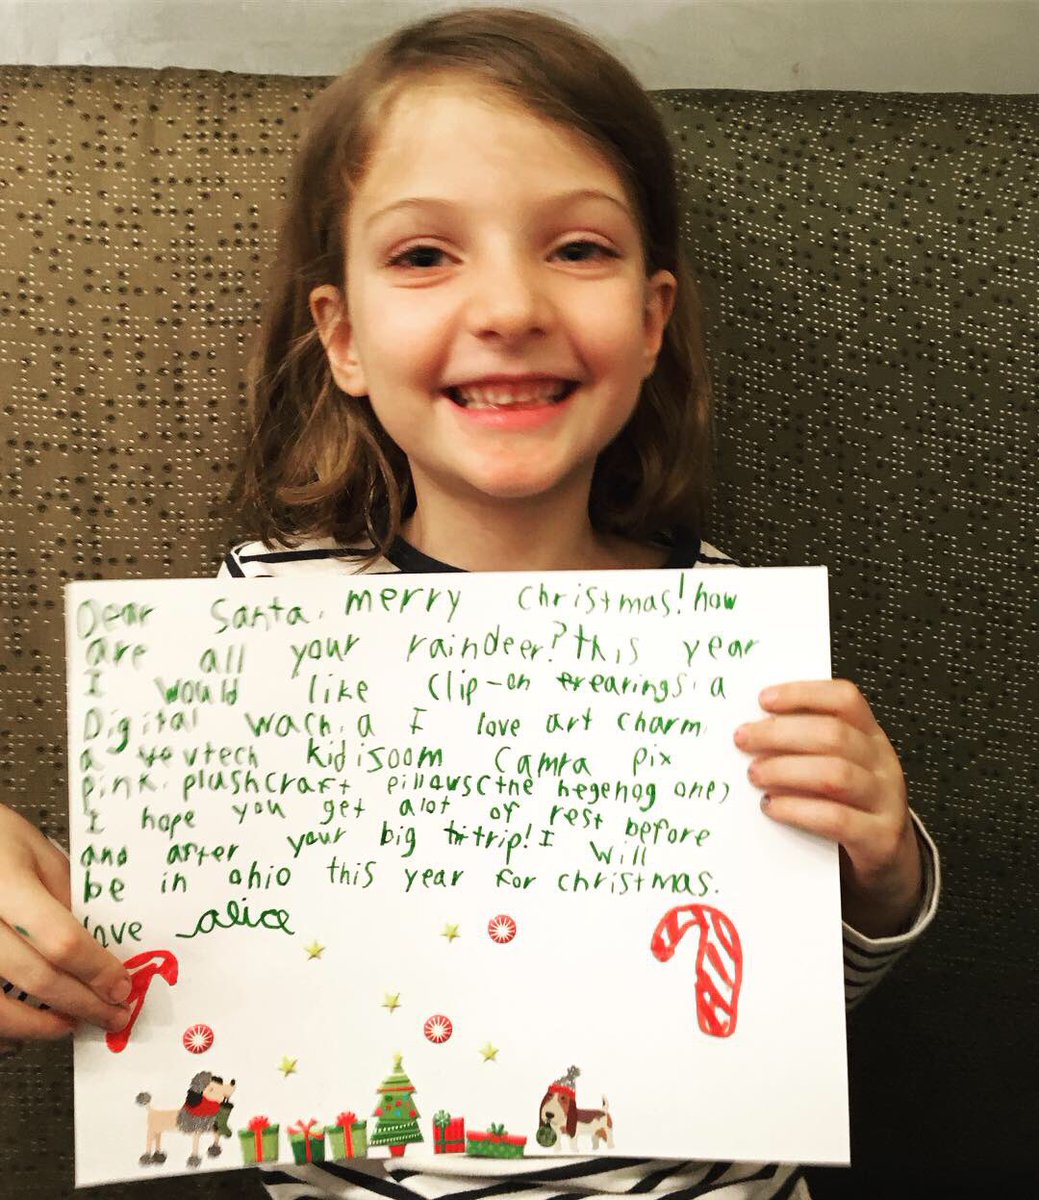 Dear Santa, merry christmas! how
are all your raindeer? this year
I would like clip-on erearings, a
Digital wach, a I love art charm,
a vevtech kidizoom camra pix
pink, plushcraft pillows (the hegehog one)
I hope you get alot of rest before
and after your big trip! I will
be in ohio this year for christmas.
love alice